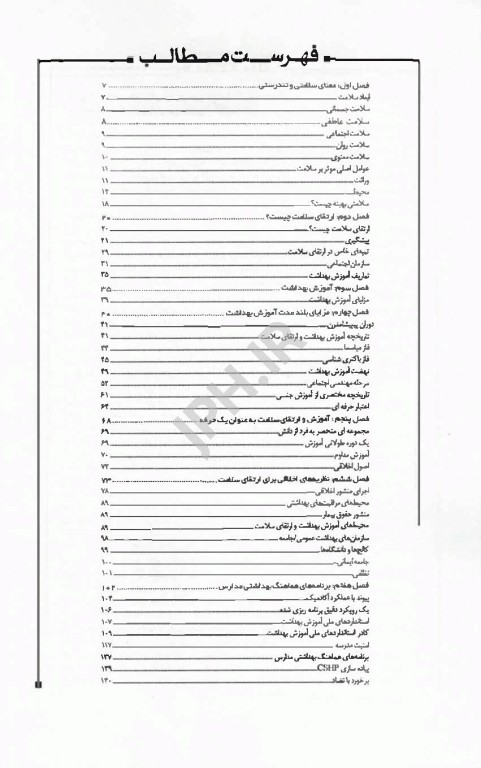 فهرست مطالب
فصل اول: معنای سلامتی و تندرستی ۷
ابعاد سلامت ۷
سلامت جسمانی ۸
سلامت عاطفی ۸
سلامت اجتماعی ۹
سلامت روان ۹
سلامت معنوی ۱۰
عوامل اصلی موثر بر سلامت ۱۱
وراثت ۱۱
محیط ۱۲
سلامتی بهینه چیست؟ ۱۸
فصل دوم: ارتقای سلامت چیست؟ ۲۰
ارتقای سلامت چیست؟ ۲۰
پیشگیری ۲۱
تیپ‌های خاص در ارتقای سلامت ۲۹
سازمان اجتماعی ۳۱
تعاریف آموزش بهداشت ۳۵
فصل سوم: آموزش بهداشت ۳۵
مزایای آموزش بهداشت ۳۹
فصل چهارم: مزایای بلند مدت آموزش بهداشت ۴۰
دوران پیشامدرن ۴۱
تاریخچه آموزش بهداشت و ارتقای سلامت ۴۱
فاز میاسما ۴۴
فاز باکتری شناسی ۴۵
نهضت آموزش بهداشت ۴۹
مرحله مهندسی اجتماعی ۵۲
تاریخچه مختصری از آموزش جنسی ۶۱
اعتبار حرفه ای ۶۴
فصل پنجم: آموزش و ارتقای سلامت به عنوان یک حرفه ۶۸
مجموعه ای منحصر به فرد از دانش ۶۹
یک دوره طولانی آموزش ۶۹
آموزش مداوم ۷۰
اصول اخلاقی ۷۲
فصل ششم: نظریه‌های اخلاقی برای ارتقای سلامت ۷۳
اجرای منشور اخلاقی ۷۸
محیط‌های مراقبت‌های بهداشتی ۸۹
منشور حقوق بیمار ۸۹
محیط‌های آموزش بهداشت و ارتقای سلامت ۸۹
سازمان‌های بهداشت عمومی/جامعه ۹۸
کالج‌ها و دانشگاه‌ها ۹۹
جامعه ایمانی ۱۰۰
نظامی ۱۰۱
فصل هفتم: برنامه‌های هماهنگ بهداشتی مدارس ۱۰۲
پیوند با عملکرد آکادمیک ۱۰۴
یک رویکرد دقیق برنامه ریزی شده ۱۰۶
استانداردهای ملی آموزش بهداشت ۱۰۷
کادر استانداردهای ملی آموزش بهداشت ۱۰۹
امنیت مدرسه ۱۱۷
برنامه‌های هماهنگ بهداشتی مدارس ۱۳۷
پیاده سازی CSHP ۱۳۹
برخورد با تضاد ۱۴۰
JPH.IR